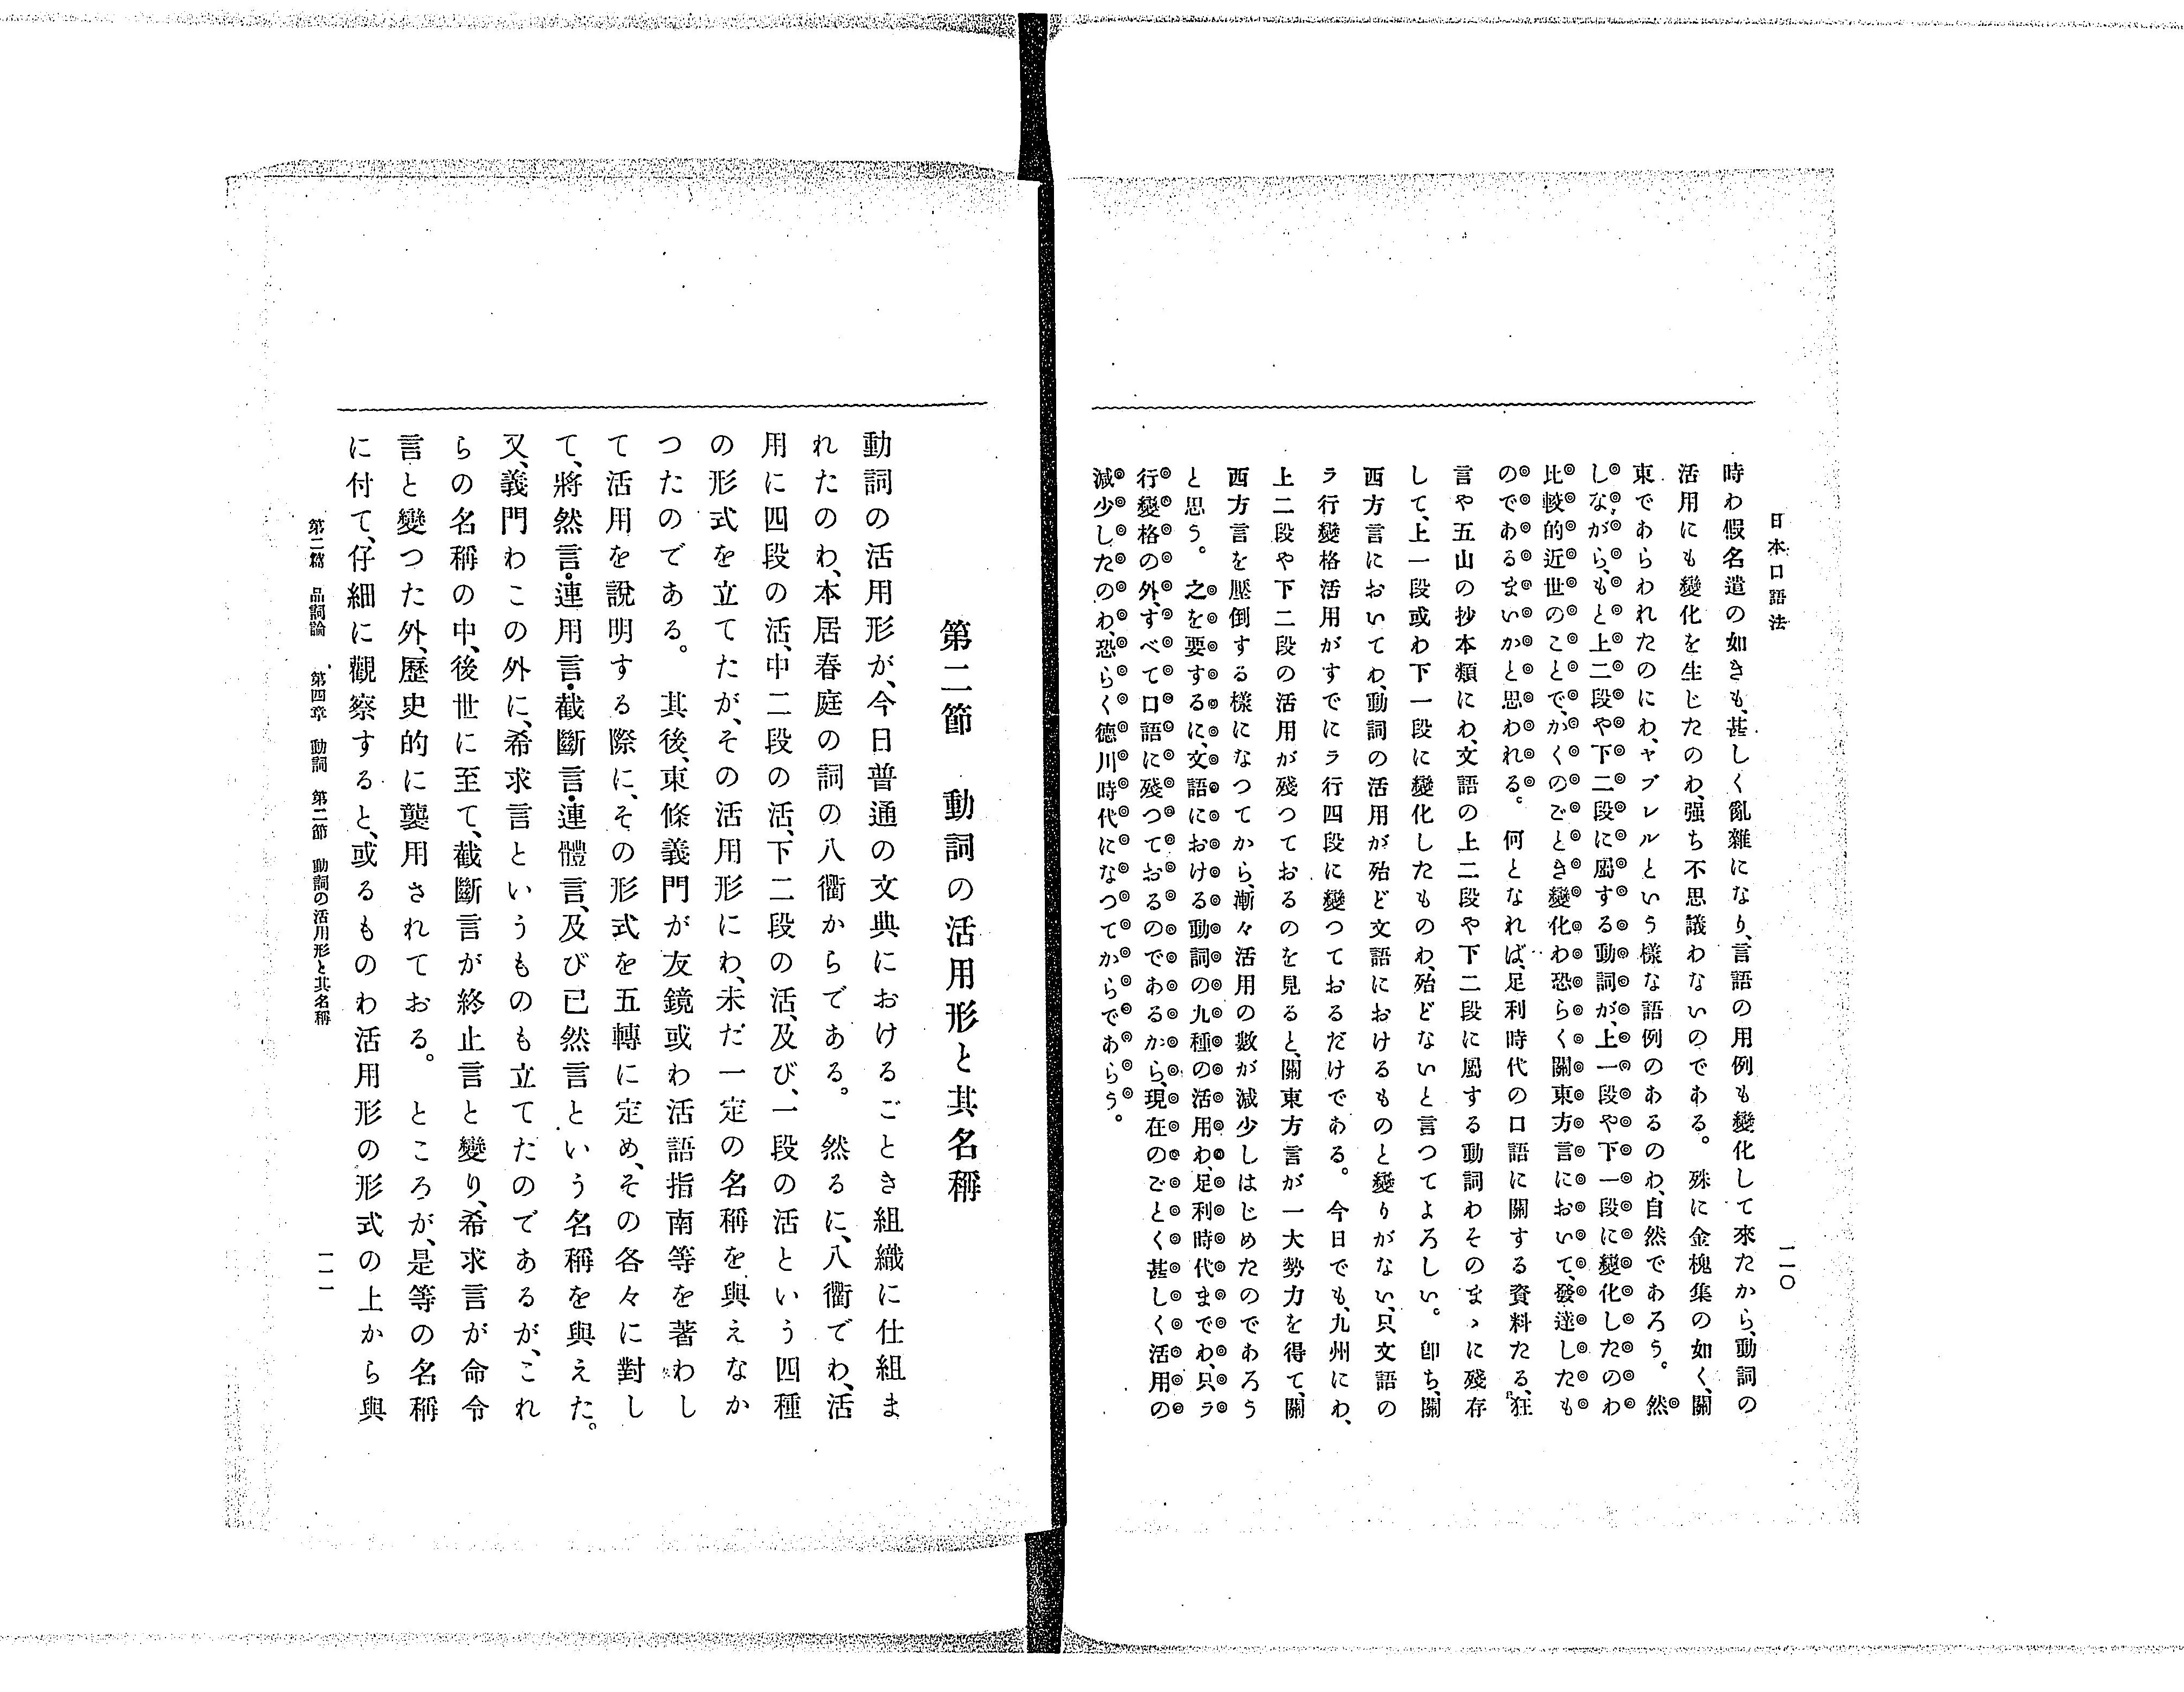 日本口語法
一一〇
時わ假名遣の如きも、甚しく亂雜になり、言語の用例も變化して來たから、動詞の
活用にも變化を生じたのわ、强ち不思議わないのである。 殊に金槐集の如く、關
東であらわれたのにわ、ヤブレルという樣な語例のあるのわ、自然であろう。 然
しながら、もと上二段や下二段に屬する動詞が、上一段や下一段に變化したのわ
比較的近世のことで、かくのごとき變化わ恐らく關東方言において、發達したも
のであるまいかと思われる。 何となれば、足利時代の口語に關する資料たる、狂
言や五山の抄本類にわ、文語の上二段や下二段に屬する動詞わそのまゝに殘存
して、上一段或わ下一段に變化したものわ、殆どないと言つてよろしい。 卽ち、關
西方言においてわ、動詞の活用が殆ど文語におけるものと變りがない、只文語の
ラ行變格活用がすでにラ行四段に變つておるだけである。 今日でも、九州にわ、
上二段や下二段の活用が殘つておるのを見ると、關東方言が一大勢力を得て、關
西方言を壓倒する樣になつてから、漸々活用の數が減少しはじめたのであろう
と思う。 之を要するに、文語における動詞の九種の活用わ、足利時代までわ、只ラ
行變格の外、すべて口語に殘つておるのであるから、現在のごとく甚しく活用の
減少したのわ、恐らく德川時代になつてからであらう。
第二節 動詞の活用形と其名稱
動詞の活用形が、今日普通の文典におけるごとき組織に仕組ま
れたのわ、本居春庭の詞の八衢からである。 然るに、八衢でわ、活
用に四段の活、中二段の活、下二段の活、及び、一段の活という四種
の形式を立てたが、その活用形にわ、未だ一定の名稱を與えなか
つたのである。 其後、東條義門が友鏡或わ活語指南等を著わし
て活用を說明する際に、その形式を五轉に定め、その各々に對し
て、將然言・連用言・截斷言・連體言、及び已然言という名稱を與えた。
又、義門わこの外に、希求言というものも立てたのであるが、これ
らの名稱の中、後世に至て、截斷言が終止言と變り、希求言が命令
言と變つた外、歷史的に襲用されておる。 ところが、是等の名稱
に付て、仔細に觀察すると、或るものわ活用形の形式の上から與
第二篇 品詞論 第四章 動詞 第二節 動詞の活用形と其名稱
一一一